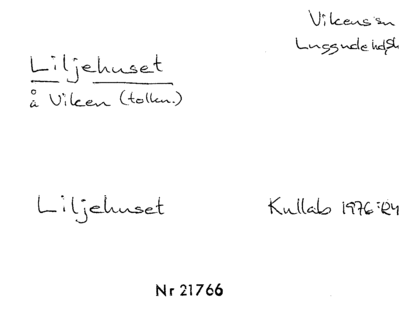 Vikens sn
Luggude hd
Liljehuset
å Viken (tolkn.)
Liljehuset Kullab 1976:
Nr 21766